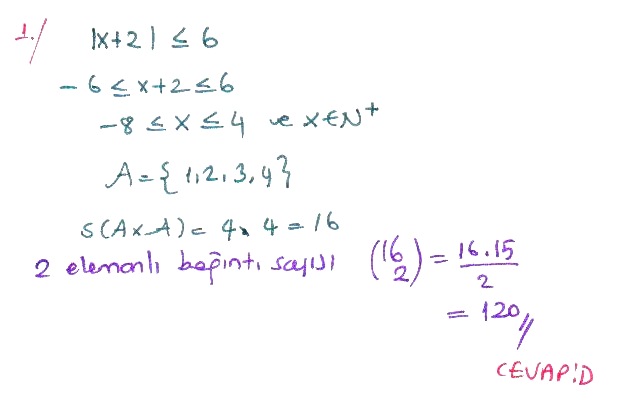 1./ |x+2| ≤ 6
-6 ≤ x+2 ≤ 6
-8 ≤ x ≤ 4 ve x∈N⁺
A = {1,2,3,4}
s(A×A) = 4×4 = 16
2 elemanlı bağıntı sayısı (16 2) = 16.15 / 2
= 120 //
CEVAP:D